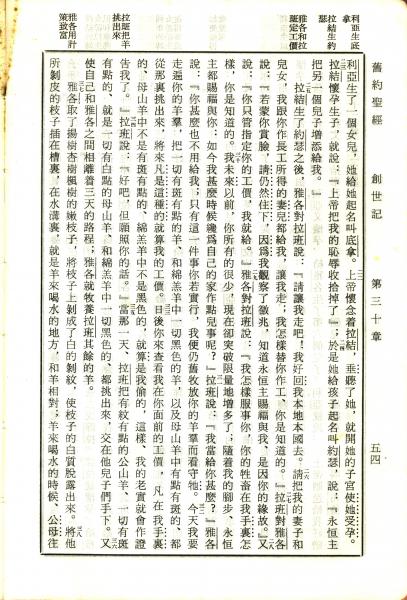 舊約聖經　創世記　第三十章　五四
利亞生底拿
拉結生約瑟
雅各和拉班定工價
拉班把羊挑出來
雅各用計策致富
利亞生了一個女兒，她給她起名叫底拿。上帝懷念着拉結，垂聽了她，就開她的子宮使她受孕。
拉結懷孕生子，就說：『上帝把我的恥辱收拾掉了』；於是她給孩子起名叫約瑟，說：『永恆主
把另一個兒子增添給我。』
拉結生了約瑟之後，雅各對拉班說：『請讓我走吧！我好回我本地本國去。請把我的妻子和
兒女，我跟你作長工所得的妻兒都給我，讓我走；我怎樣替你作工、你是知道的。』拉班對雅各
說：『若蒙你賞臉，請仍然住下，因爲我觀察了徵兆，知道永恆主賜福與我、是因你的緣故。』又
說：『你只管指定你的工價，我就給。』雅各對拉班說：『我怎樣服事你，你的牲畜在我手裏怎
樣，你是知道的。我未來以前，你所有的很少，現在卻突破限量地增多了；隨着我的腳步、永恆
主都賜福與你：如今我甚麼時候纔爲自己的家作點兒事呢？』拉班說：『我當給你甚麼？』雅各
說：『你甚麼也不用給我，只有這一件事你若實行，我便仍舊牧放你的羊羣而看守牠。今天我要
走遍你的羊羣，把一切有斑有點的羊、和綿羔羊中一切黑色的羊、以及母山羊中有點有斑的、都
從那裏挑出來，將來凡是這種的就算我的工價。日後你來查看我在你面前的工價，凡在我手裏
的、母山羊中不是有斑有點的、綿羔羊中不是黑色的，就算是我偷的，這樣、我的老實就會作證
告我了。』拉班說：『好吧，但願照你的話。』當那一天、拉班把有紋有點的公山羊、一切有斑
有點的、就是一切有白點的母山羊、和綿羔羊中一切黑色的、都挑出來，交在他兒子們手下。又
使自己和雅各之間相離着三天的路程；雅各就牧養拉班其餘的羊。
雅各取了楊樹杏樹楓樹的嫩枝子，將枝子上剝成了白的剝紋，使枝子的白質股露出來。將他
所剝皮的枝子插在槽裏，在水溝裏、就是羊來喝水的地方、和羊相對；羊來喝水的時候、公母往